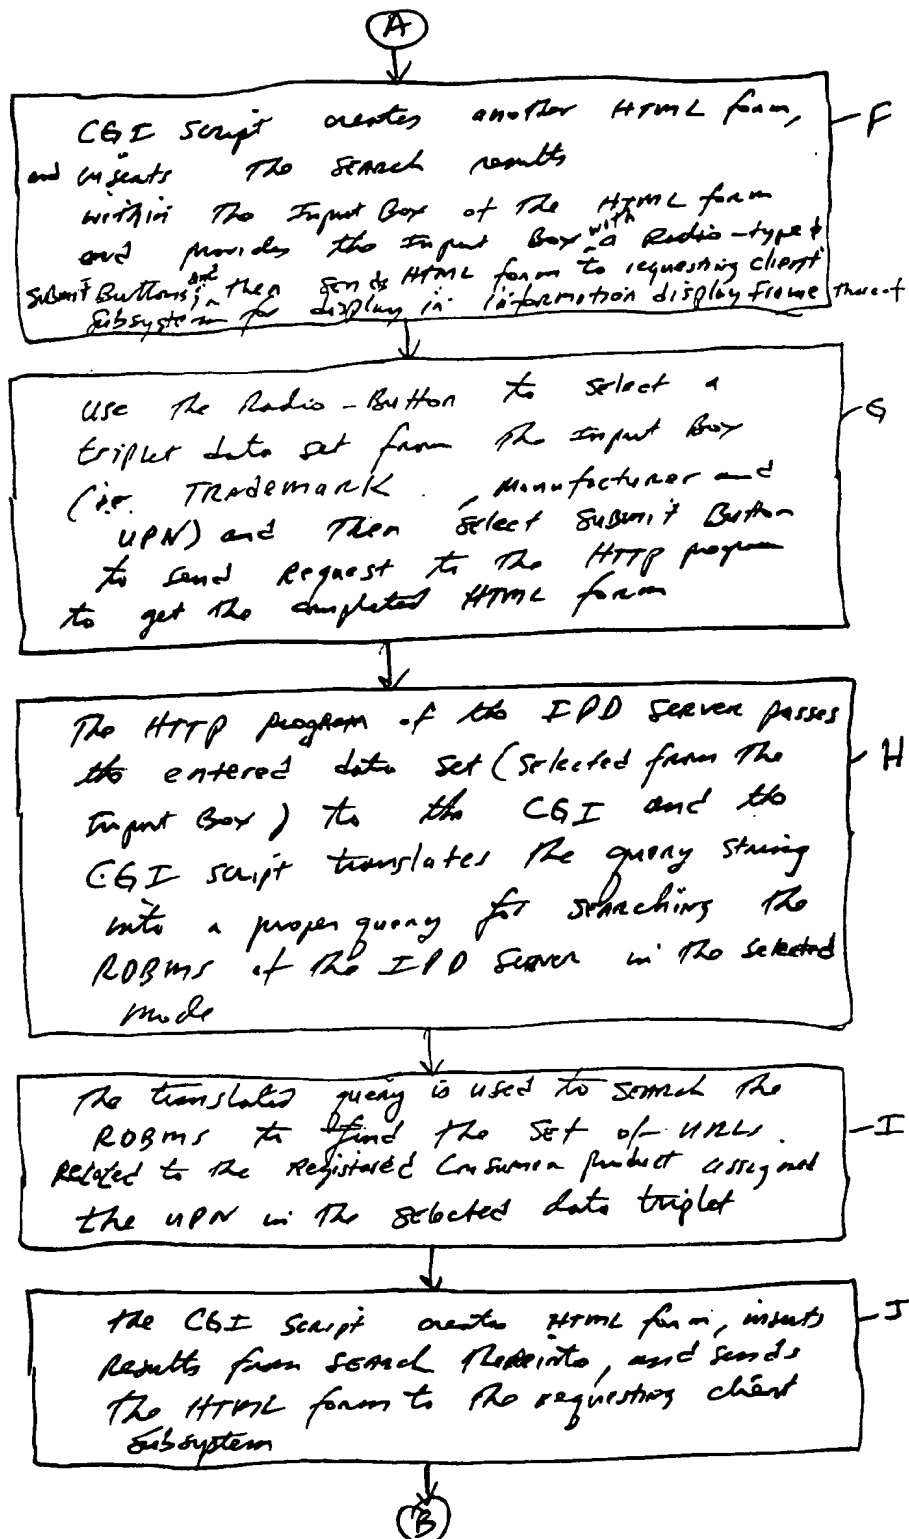 A
CGI Script creates another HTML form,
and inserts the SEARCH results
within the Input Box of the HTML form
and provides the Input Box with a Radio-type &
Submit Buttons; and then sends HTML form to requesting client
Subsystem for display in information display frame thereof
F
Use the Radio-Button to select a
triplet data set from the Input Box
(ie. TRADEMARK, Manufacturer and
UPN) and then select Submit Button
to send Request to the HTTP program
to get the completed HTML form
G
The HTTP program of the IPD Server passes
the entered data set (selected from the
Input Box) to the CGI and the
CGI script translates the query string
into a proper query for searching the
RDBMS of the IPD Server in the selected
mode
H
The translated query is used to SEARCH the
RDBMS to find the set of URLs
Related to the Registered Consumer product assigned
the UPN in the selected data triplet
I
the CGI Script creates HTML form, inserts
Results from SEARCH thereinto, and sends
the HTML form to the requesting client
subsystem
J
B